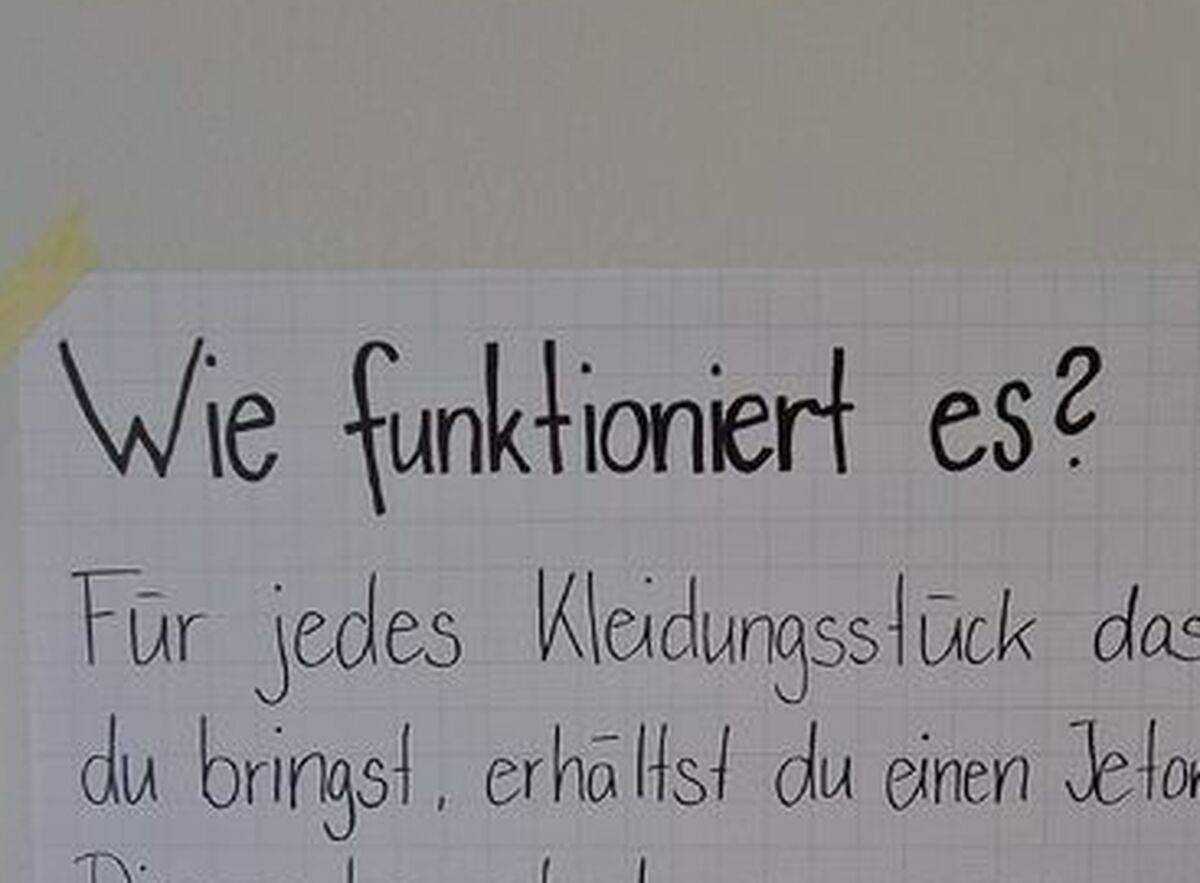 Wie funktioniert es?
Für jedes Kleidungsstück das
du bringst, erhältst du einen Jeton